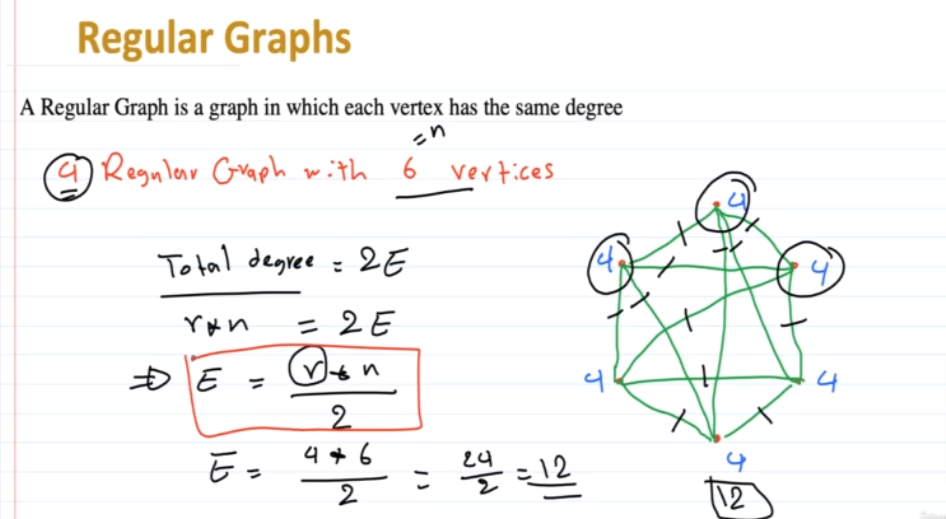 Regular Graphs
A Regular Graph is a graph in which each vertex has the same degree
= n
4 Regular Graph with 6 vertices
Total degree = 2E
r*n = 2E
⇒ E = r*n / 2
E = 4*6 / 2 = 24 / 2 = 12
4
4
4
4
4
4
12